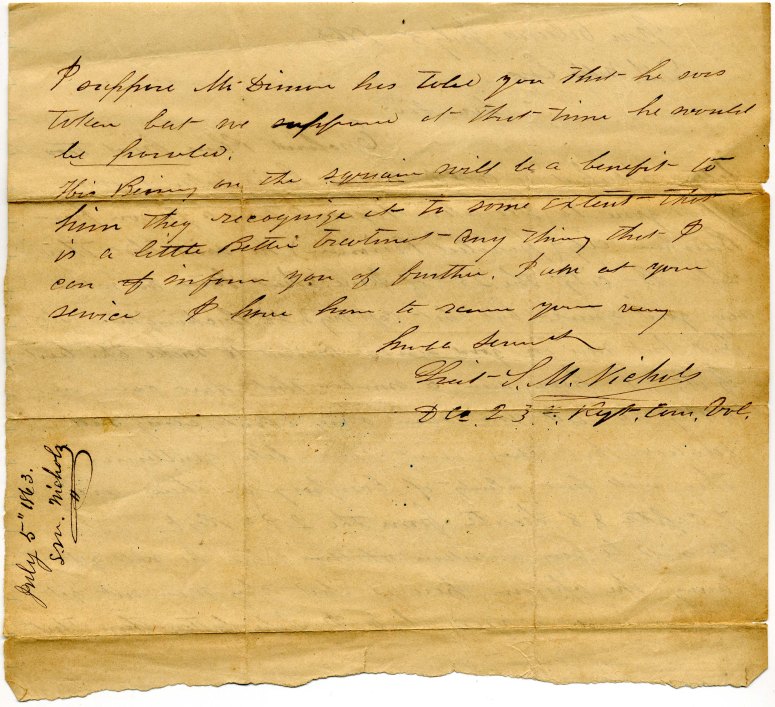 I suppose Mr Dimon has told you that he was
taken but we suppose at that time he would
be paroled.
His Being on the will be a benefit to
him they recognize it to some extent that
is a little Better treatment any thing that I
can of inform you of further. I am at your
service I have hon to your very
humb servent
Lieut S. M. Nichols
D Co. 23 Regt. Con. Vol.
July 5" 1863.
S.M. Nichols